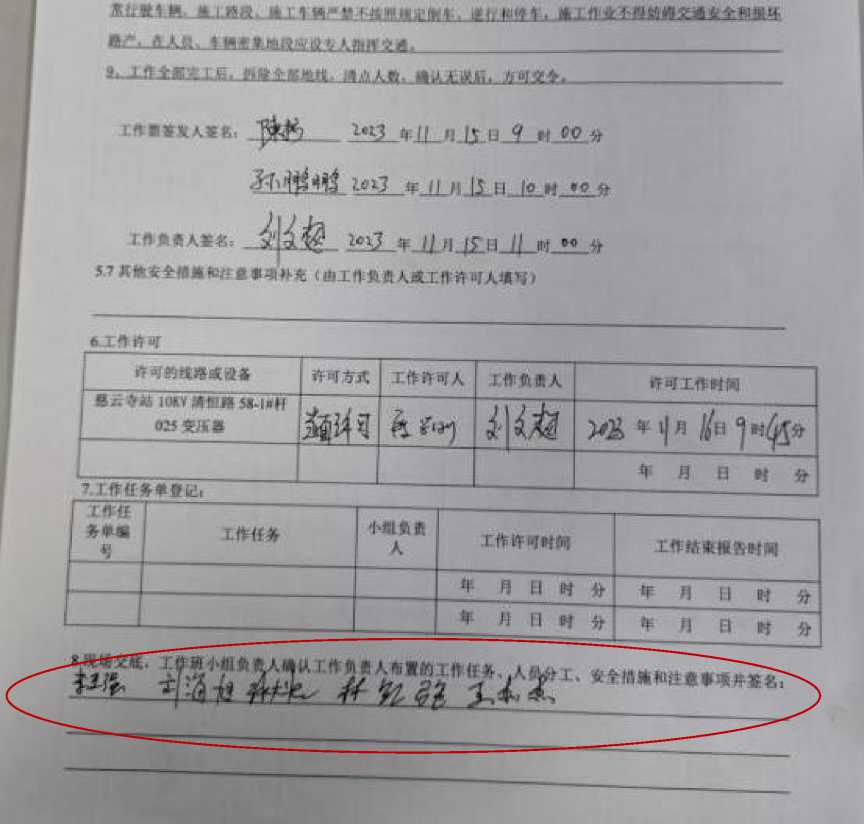 常行驶车辆。施工路段、施工车辆严禁不按照规定倒车、逆行和停车，施工作业不得妨碍交通安全和损坏
路产。在人员、车辆密集地段应设专人指挥交通。
9、工作全部完工后，拆除全部地线，清点人数，确认无误后，方可交令。
工作票签发人签名： 2023 年 11 月 15 日 9 时 00 分
孙鹏鹏 2023 年 11 月 15 日 10 时 00 分
工作负责人签名：刘文超 2023 年 11 月 15 日 11 时 00 分
5.7 其他安全措施和注意事项补充（由工作负责人或工作许可人填写）
6.工作许可
许可的线路或设备 许可方式 工作许可人 工作负责人 许可工作时间
慈云寺站 10KV 清恒路 58-1#杆
025 变压器 当面许可 刘文超 2023 年 11 月 16 日 9 时 45 分
年 月 日 时 分
7.工作任务单登记：
工作任务单编号 工作任务 小组负责人 工作许可时间 工作结束报告时间
年 月 日 时 分 年 月 日 时 分
年 月 日 时 分 年 月 日 时 分
8.现场交底，工作班小组负责人确认工作负责人布置的工作任务、人员分工、安全措施和注意事项并签名：